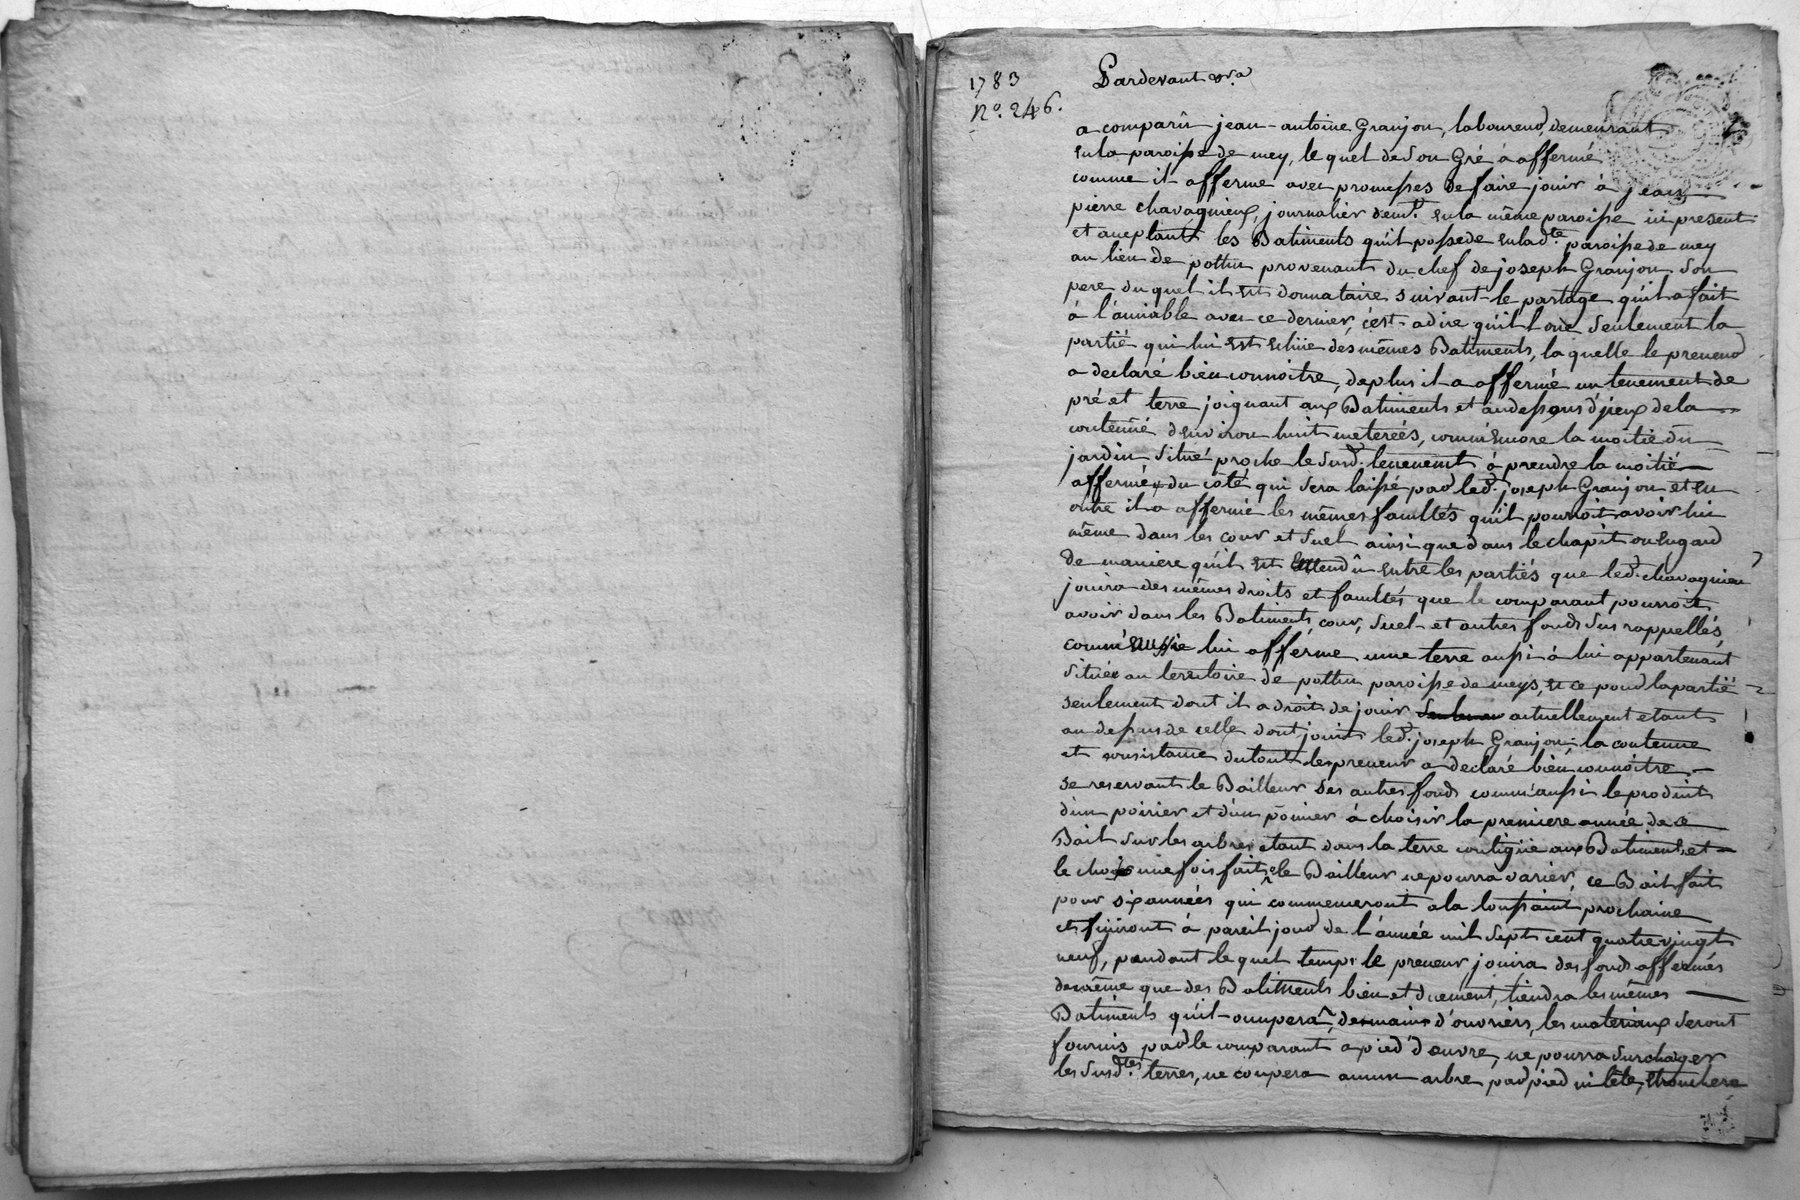 1783
N.º 246.
Pardevant &ra
a comparû jean-antoine Granjon, laboureur, demeurant
en la paroisse de mey, lequel de son Gré à affermé
comme il afferme avec promesses de faire jouir à jean
pierre chavagnieux, journalier demt. en la même paroisse ici present
et acceptant les Batiments qu'il possede en ladte. paroisse de mey
au lieu de pottu provenant du chef de joseph Granjon son
pere du quel il est donnataire suivant le partage qu'il a fait
à l'amiable avec ce dernier, c'est-adire qu'il loüe seulement la
partië qui lui est echüe des mêmes Batiments, la quelle le preneur
a declaré bien connoitre, deplus il a affermé un tenement de
pré et terre joignant aux Batiments et audessous d'jceux de la
contenüe d'environ huit meterées, comm'encore la moitié du
jardin situé proche le susd. tenement à prendre la moitié
affermée du coté qui sera laissé par led. joseph Granjon et en
outre il a affermé les mêmes facultés qu'il pourroit avoir lui
même dans les cour et suel ainsi que dans le chapit ou engard
de maniere qu'il est entendû entre les partiës que led. chavagnieu
jouira des mêmes droits et facultés que le comparant pourroit
avoir dans les Batiments cour, suel et autres fonds sus rappellés,
comm' lui afferme une terre aussi à lui appartenant
située au territoire de pottu paroisse de meys, et ce pour la partië
seulement dont il a droit de jouir actuellement etant
au dessus de celle dont jouit led. joseph Granjon, la contenue
et consistance du tout le preneur a declaré bien connoitre
se reservant le Bailleur ses autres fonds comm'aussi le produit
d'un poirier et d'un pomier à choisir la premiere année de ce
Bail sur les arbres etant dans la terre contigüe aux Batiments, et
le choix une fois fait le Bailleur ne pourra varier, ce Bail fait
pour six années qui commenceront a la toussaint prochaine
et finiront à pareil jour de l'année mil sept cent quatre vingt
neuf, pendant le quel temps le preneur jouira des fonds affermés
demême que des Batiments bien et duement, tiendra les mêmes
Batiments qu'il occupera, demains d'ouvriers, les materiaux seront
fournis par le comparant a pied d'œuvre, ne pourra surchager
les susdtes. terres, ne coupera aucun arbre par pied ni tête,